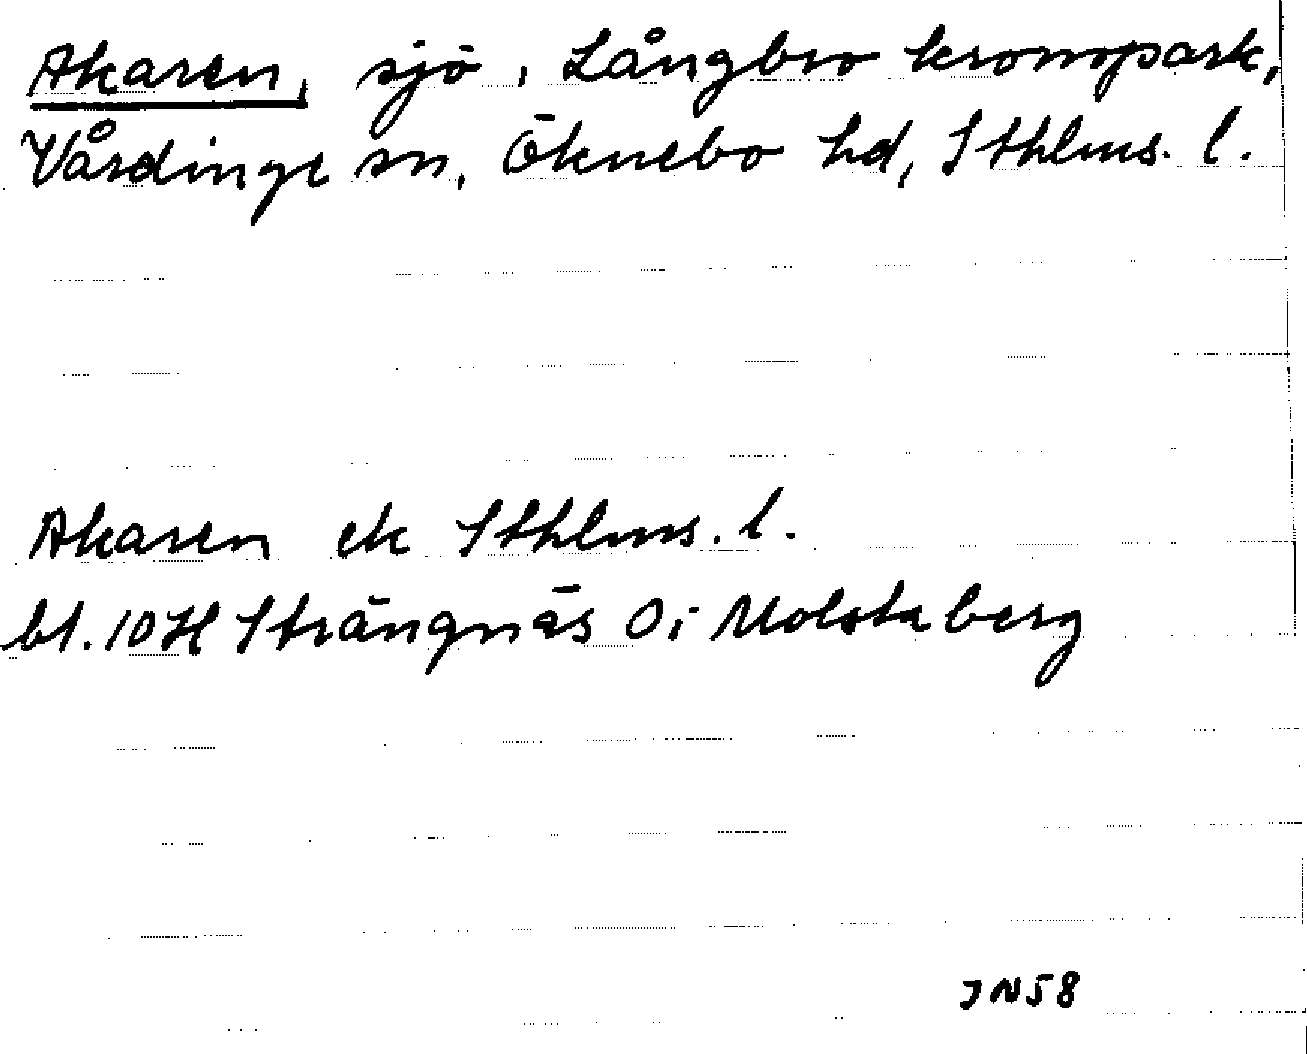 Akaren, sjö, Långbro kronopark,
Vårdinge sn, Öknebo hd, Sthlms. l.
Akaren ek Sthlms. l.
bl. 10H Strängnäs 0i Molstaberg
JN58